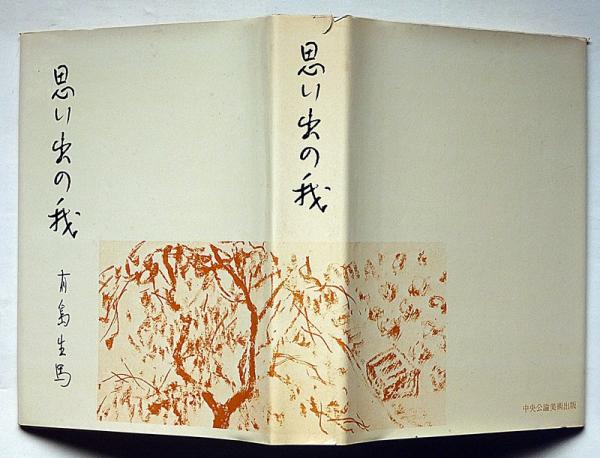 思い出の我
有島生馬
思い出の我
中央公論美術出版